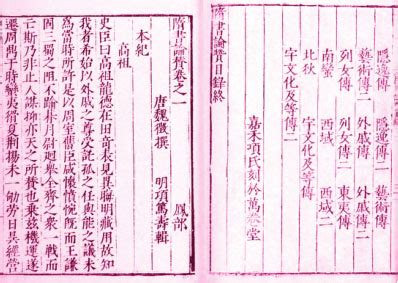 隱逸傳 隱逸傳二 藝術傳
藝術傳二 外戚傳 外戚傳二
列女傳 列女傳二 東夷傳
南蠻 西域 西域二
北狄 宇文化及等傳
宇文化及等傳二
嘉禾項氏刻於萬卷堂
隋書論贊目録終
隋書論贊卷之一 鳳部
唐魏徵撰 明項萬壽輯
本紀
高祖
史臣曰高祖龍德在田奇表見異晦明藏用故知
我者希始以外戚之尊受託孤之任與能之議未
為當時所許是以周室舊臣咸懷憤惋既而王謙
固三蜀之阻不踰朞月尉迥舉全齊之衆一戰而
亡斯乃非止人謀抑亦天之所贊也乘茲機運遂
遷周鼎于時蠻夷猾夏荊揚未一劬勞日昃經營